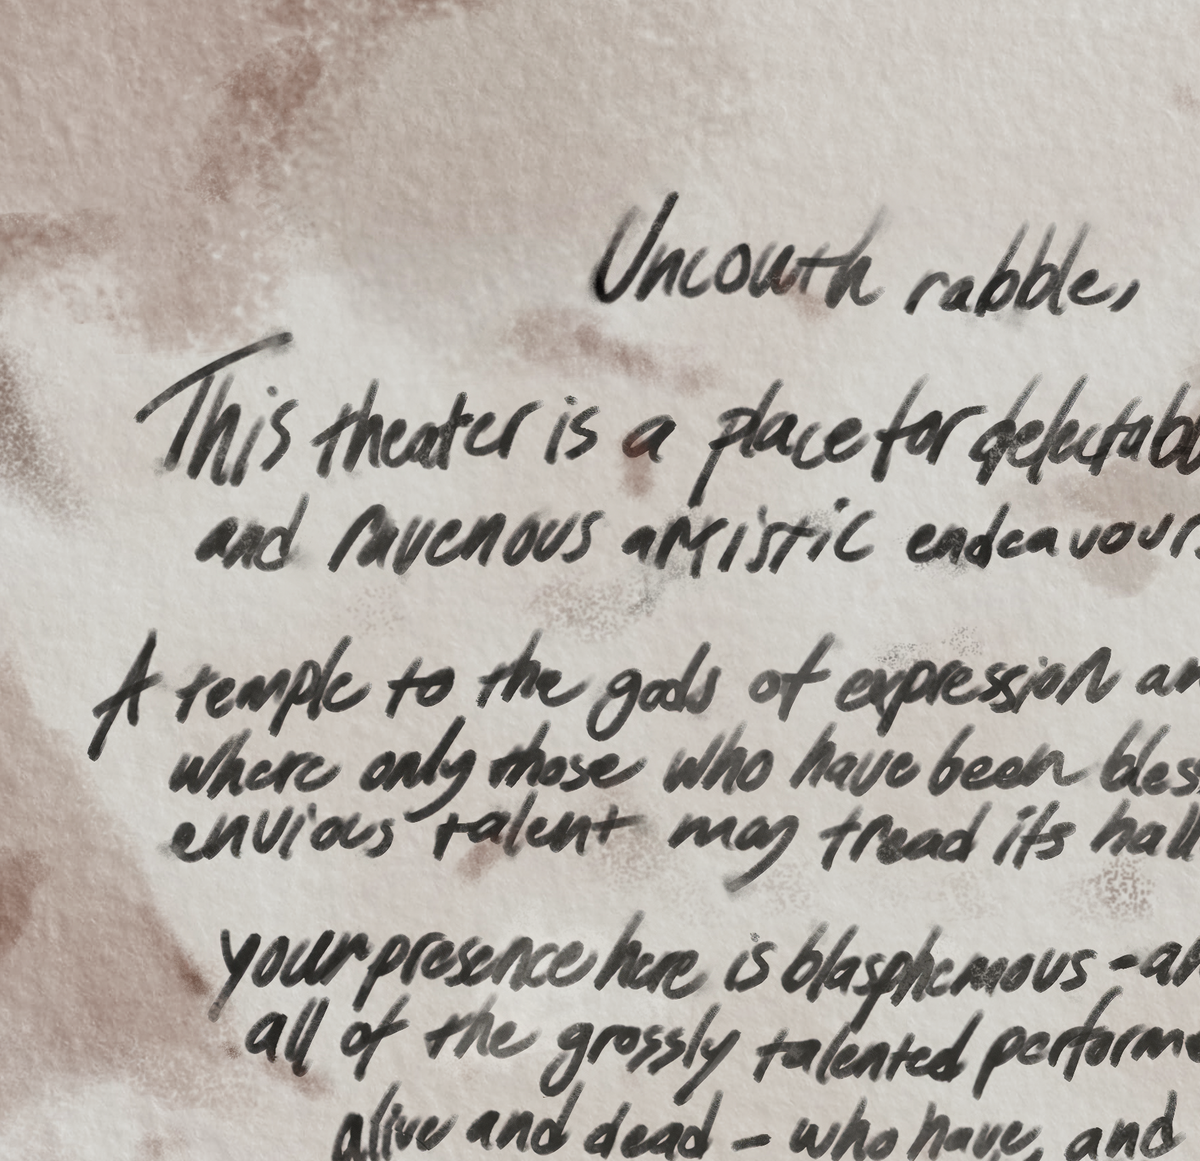 Uncouth rabble,
This theater is a place for delectabl
and ravenous artistic endeavour
A temple to the gods of expression an
where only those who have been bless
envious talent may tread its hall
your presence here is blasphemous - an
all of the grossly talented performe
alive and dead - who have, and